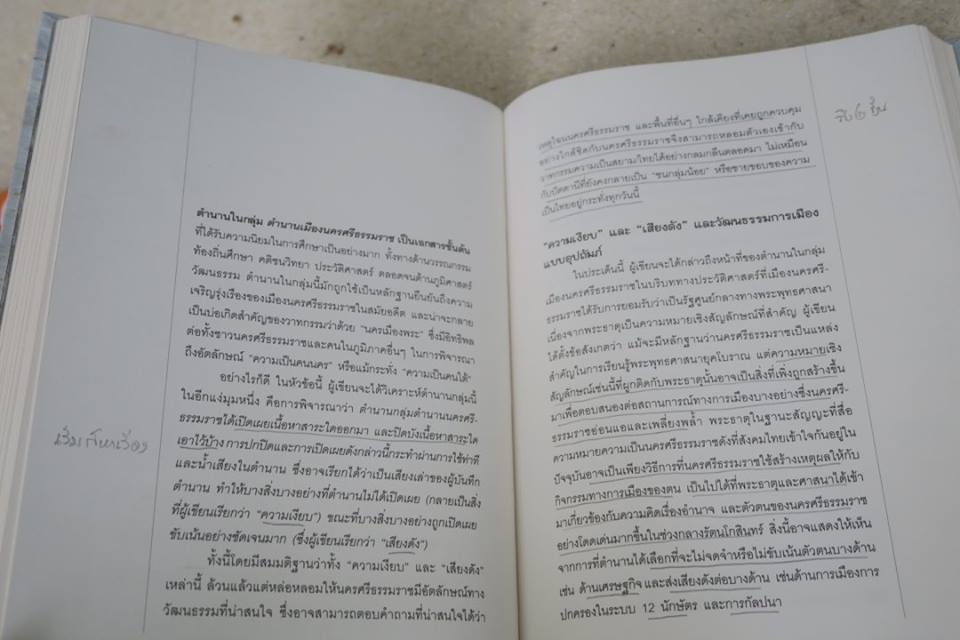 ตำนานในกลุ่ม ตำนานเมืองนครศรีธรรมราช เป็นเอกสารชั้นต้น
ที่ได้รับความนิยมในการศึกษาเป็นอย่างมาก ทั้งทางด้านวรรณกรรม
ท้องถิ่นศึกษา คติชนวิทยา ประวัติศาสตร์ ตลอดจนด้านภูมิศาสตร์
วัฒนธรรม ตำนานในกลุ่มนี้มักถูกใช้เป็นหลักฐานยืนยันถึงความ
เจริญรุ่งเรืองของเมืองนครศรีธรรมราชในสมัยอดีต และน่าจะกลาย
เป็นบ่อเกิดสำคัญของวาทกรรมว่าด้วย "นครเมืองพระ" ซึ่งมีอิทธิพล
ต่อทั้งชาวนครศรีธรรมราชและคนในภูมิภาคอื่นๆ ในการพิจารณา
ถึงอัตลักษณ์ "ความเป็นคนนคร" หรือแม้กระทั่ง "ความเป็นคนใต้"
อย่างไรก็ดี ในหัวข้อนี้ ผู้เขียนจะได้วิเคราะห์ตำนานกลุ่มนี้
ในอีกแง่มุมหนึ่ง คือการพิจารณาว่า ตำนานกลุ่มตำนานนครศรี-
ธรรมราชได้เปิดเผยเนื้อหาสาระใดออกมา และปิดบังเนื้อหาสาระใด
เอาไว้บ้าง การปกปิดและการเปิดเผยดังกล่าวนี้กระทำผ่านการใช้ท่าที
และน้ำเสียงในตำนาน ซึ่งอาจเรียกได้ว่าเป็นเสียงเล่าของผู้บันทึก
ตำนาน ทำให้บางสิ่งบางอย่างที่ตำนานไม่ได้เปิดเผย (กลายเป็นสิ่ง
ที่ผู้เขียนเรียกว่า "ความเงียบ") ขณะที่บางสิ่งบางอย่างถูกเปิดเผย
ขับเน้นอย่างชัดเจนมาก (ซึ่งผู้เขียนเรียกว่า "เสียงดัง")
ทั้งนี้โดยมีสมมติฐานว่าทั้ง "ความเงียบ" และ "เสียงดัง"
เหล่านี้ ล้วนแล้วแต่หล่อหลอมให้นครศรีธรรมราชมีอัตลักษณ์ทาง
วัฒนธรรมที่น่าสนใจ ซึ่งอาจสามารถตอบคำถามที่น่าสนใจได้ว่า
เหตุใดนครศรีธรรมราช และพื้นที่อื่นๆ ใกล้เคียงที่เคยถูกควบคุม
อย่างใกล้ชิดกับนครศรีธรรมราชจึงสามารถหลอมตัวเองเข้ากับ
วาทกรรมความเป็นสยาม/ไทยได้อย่างกลมกลืนตลอดมา ไม่เหมือน
กับปัตตานีที่ยังคงกลายเป็น "ชนกลุ่มน้อย" หรือชายขอบของความ
เป็นไทยอยู่กระทั่งทุกวันนี้
"ความเงียบ" และ "เสียงดัง" และวัฒนธรรมการเมือง
แบบอุปถัมภ์
ในประเด็นนี้ ผู้เขียนจะได้กล่าวถึงหน้าที่ของตำนานในกลุ่ม
เมืองนครศรีธรรมราชในบริบททางประวัติศาสตร์ที่เมืองนครศรี-
ธรรมราชได้รับการยอมรับว่าเป็นรัฐศูนย์กลางทางพระพุทธศาสนา
เนื่องจากพระธาตุเป็นความหมายเชิงสัญลักษณ์ที่สำคัญ ผู้เขียน
ได้ตั้งข้อสังเกตว่า แม้จะมีหลักฐานว่านครศรีธรรมราชเป็นแหล่ง
สำคัญในการเรียนรู้พระพุทธศาสนายุคโบราณ แต่ความหมายเชิง
สัญลักษณ์เช่นนี้ที่ผูกติดกับพระธาตุนั้นอาจเป็นสิ่งที่เพิ่งถูกสร้างขึ้น
มาเพื่อตอบสนองต่อสถานการณ์ทางการเมืองบางอย่างซึ่งนครศรี-
ธรรมราชอ่อนแอและเพลี่ยงพล้ำ พระธาตุในฐานะสัญญะที่สื่อ
ความหมายความเป็นนครศรีธรรมราชดังที่สังคมไทยเข้าใจกันอยู่ใน
ปัจจุบันอาจเป็นเพียงวิธีการที่นครศรีธรรมราชใช้สร้างเหตุผลให้กับ
กิจกรรมทางการเมืองของตน เป็นไปได้ที่พระธาตุและศาสนาได้เข้า
มาเกี่ยวข้องกับความคิดเรื่องอำนาจ และตัวตนของนครศรีธรรมราช
อย่างโดดเด่นมากขึ้นในช่วงกลางรัตนโกสินทร์ สิ่งนี้อาจแสดงให้เห็น
จากการที่ตำนานได้เลือกที่จะไม่จดจำหรือไม่ขับเน้นตัวตนบางด้าน
เช่น ด้านเศรษฐกิจ และส่งเสียงดังต่อบางด้าน เช่นด้านการเมืองการ
ปกครองในระบบ 12 นักษัตร และการกัลปนา